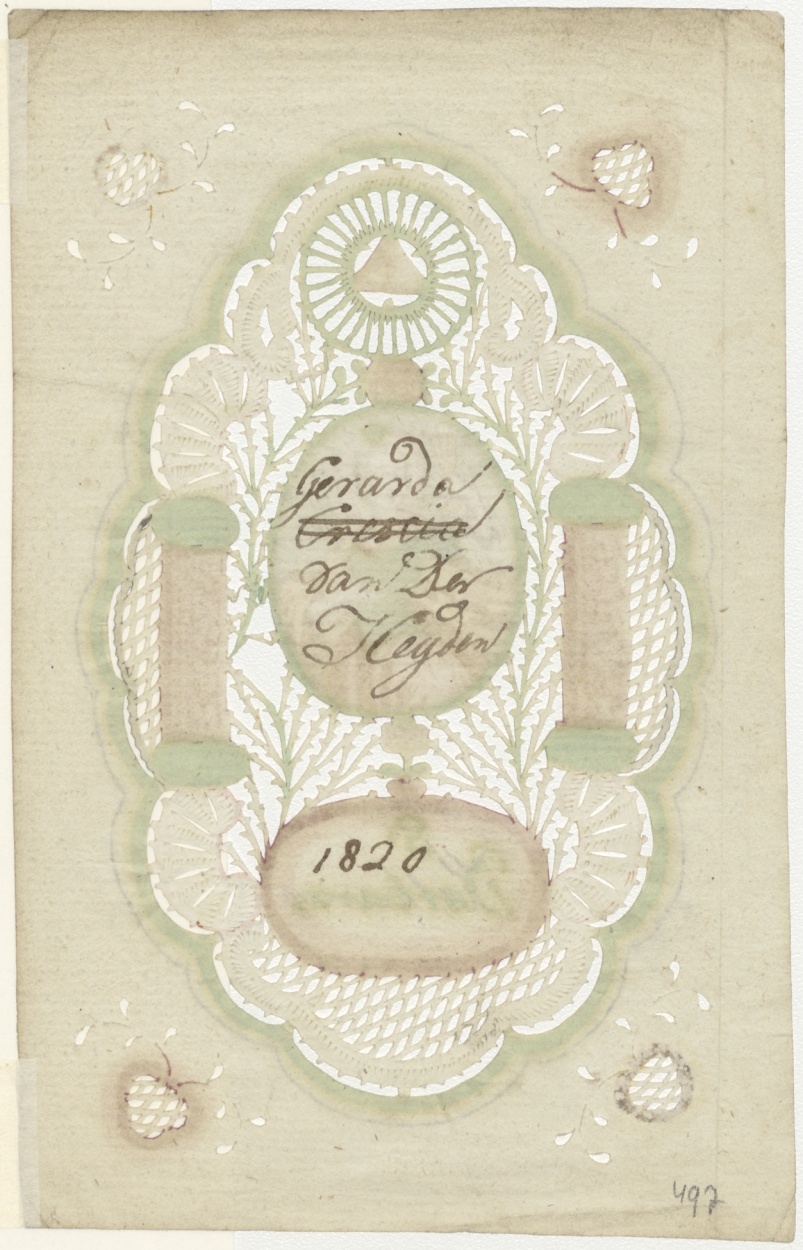 Gerarda
van Der
Heyden
1820
497